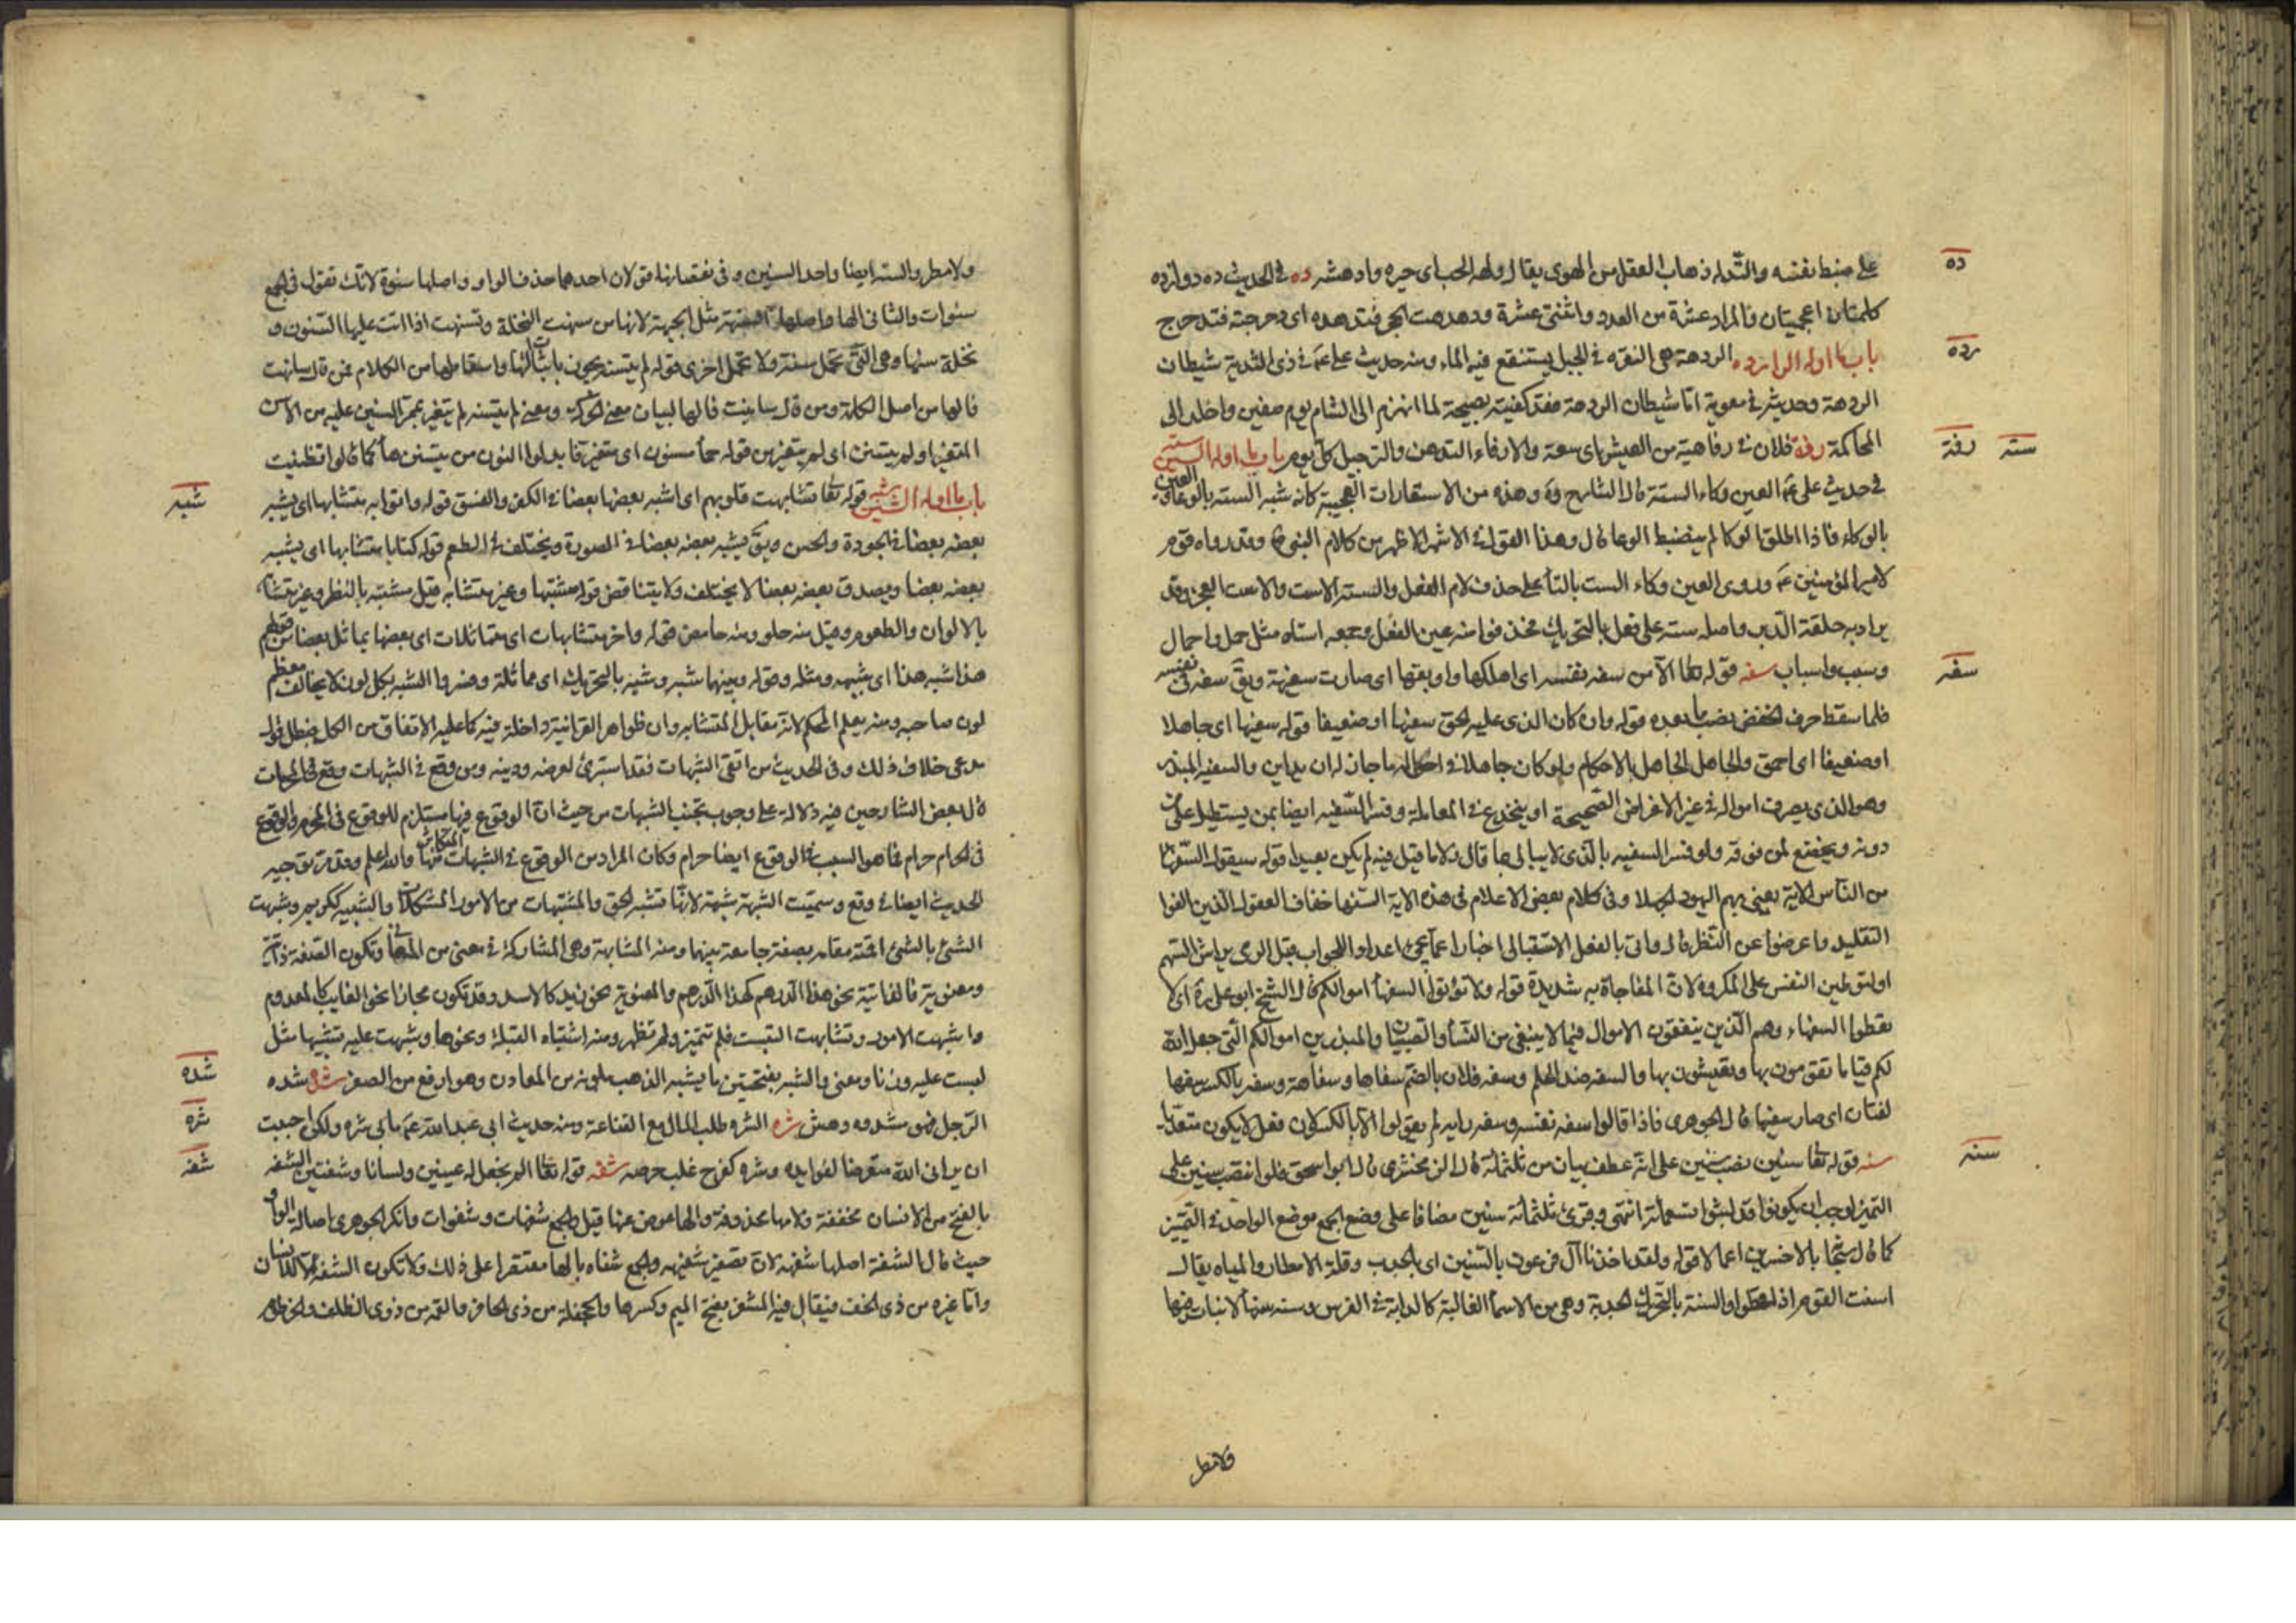 على ضبط نفسه والتدله ذهاب العقل من الهوى يقال دلهه الحب اى حيره وادهشه ده فى الحديث ده دوازده
كلمتان اعجميتان فالمراد عشرة من العدد واثنتى عشرة ودهدهت الحجر فتدهده اى دحرجته فتدحرج
باب ما اوله الرا رده الردهة هى النقره فى الجبل يستنقع فيه الماء ومنه حديث على عم فى ذى الثدية شيطان
الردهة وحديثه فى معوية اما شيطان الردهة فقد كفيته بصيحة لما انهزم الى الشام يوم صفين واخلد الى
المحاكمة رفة فلان فى رفاهية من العيش اى سعة والارفاء التدهن والترجيل كل يوم باب ما اوله السين سته
فى حديث على عم العين وكاء السته قال الشارح وهذه من الاستعارات العجيبة كانه شبه السته بالوعا والعين
بالوكاء فاذا اطلق الوكا لم ينضبط الوعا قال وهذا القول فى الاشهر الاظهر من كلام النبى وقد رواه قوم
لامير المؤمنين عم وروى العين وكاء الست بالتا على حذف لام الفعل والسته الاست والاست العجز وقد
يراد به حلقة الدبر واصله سته على فعل بالتحريك فحذفوا منه عين الفعل وجمعه استاه مثل جمل واجمال
وسبب واسباب سفه قوله تعا الا من سفه نفسه اى اهلكها واوبقها اى صارت سفيهة ويق سفه فى نفسه
فلما سقط حرف الخفض نصب ما بعده قوله وان كان الذى عليه الحق سفيها او ضعيفا قوله سفيها اى جاهلا
او ضعيفا اى احمق والجاهل الجاهل بالاحكام ولو كان جاهلا فى احواله ما جاز له ان يداين والسفيه المبذر
وهو الذى يصرف امواله فى غير الاغراض الصحيحة او ينخدع فى المعاملة وفسر السفيه ايضا بمن يستطيل على من
دونه ويخضع لمن فوقه ولو فسر السفيه بالذى لا يبالى بما قال ولا ما قيل فيه لم يكن بعيدا قوله سيقول السفها
من الناس الاية يعنى بهم اليهود لجهلا وفى كلام بعض الاعلام فى هذه الاية السفها خفاف العقول الذين الفوا
التقليد واعرضوا عن النظر قال واتى بالفعل الاستقبالى اخبارا عما يجئ اعداد اللجواب قبل الرمى يراش السهم
او لتوطين النفس على المكروه لان المفاجاة به شديدة قوله ولا تؤتوا السفها اموالكم قال الشيخ ابو على ره اى لا
تعطوا السفهاء وهم الذين ينفقون الاموال فيما لا ينبغى من النسا والصبيان والمبذرين اموالكم التى جعل الله
لكم قياما تقومون بها وتعيشون بها والسفه ضد الحلم وسفه فلان بالضم سفاها وسفاهة وسفه بالكسر سفها
لغتان اى صار سفيها قال الجوهرى فاذا قالوا سفه نفسه وسفه رايه لم يقولوا الا بالكسر لان فعل لا يكون متعديا
سنه قوله تعا سنين نصب سنين على انه عطف بيان من ثلثمائة قال الزمخشرى قال ابو اسحق فلو انتصب سنين على
التميز لوجب ان يكونوا قد لبثوا تسعمائة انتهى وقرئ ثلثمائة سنين مضافا على وضع الجمع موضع الواحد فى التمييز
كما قال تعا بالاخسرين اعمالا قوله ولقد اخذنا آل فرعون بالسنين اى بالجدب وقلة الامطار والمياه يقال
اسنت القوم اذا قحطوا والسنة بالتحريك الجدبة وهى من الاسما الغالبة كالدابة فى الفرس وسنه سنها لا نبات فيها
ولا مطر
ده
رده
رفة
سته
سفه
سنه
ولا مطر والسنه ايضا واحد السنين وفى نقصانها قولان احدهما حذف الواو واصلها سنوة لانك تقول فى الجمع
سنوات والثانى الها واصلها سنهة مثل الجبهة لانها من سنهت النخلة وتسنهت اذا اتت عليها السنون و
نخلة سنها وهى التى تحمل سنة ولا تحمل اخرى قوله لم يتسنه يجوز باثبات الها واسقاطها من الكلام فمن قال سانهت
فالها من اصل الكلمة ومن قال سانيت فالها لبيان معنى الحركة ومعنى لم يتسنه لم يتغير بمر السنين عليه من الاسن
المتغير او لم يتسنن اى لم يتغير من قوله حما مسنون اى متغير فابدلوا النون من يتسنن ها كما قالوا تظنيت
باب ما اوله الشين شبه قوله تعا تشابهت قلوبهم اى اشبه بعضها بعضا فى الكفر والفسق قوله واتوا به متشابها اى يشبه
بعضه بعضا فى الجودة والحسن ويق يشبه بعضه بعضا فى الصورة ويختلف فى الطعم قوله كتابا متشابها اى يشبه
بعضه بعضا ويصدق بعضه بعضا لا يختلف ولا يتناقض قوله مشتبها وغير متشابه قيل مشتبه بالنظر وغير متشابه
بالالوان والطعوم وقيل منه حلو ومنه حامض قوله واخر متشابهات اى متماثلات اى بعضها يماثل بعضا من قولهم
هذا شبه هذا اى شبيهه ومثله وقوله وبينهما شبه وشبه بالتحريك اى مماثلة وفسروا الشبه بكل لون لا يخالف معظم
لون صاحبه ومنه يعلم المحكم لانه مقابل المتشابه وان ظواهر القرانية داخلة فيه كما عليه الاتفاق من الكل فبطل قول
مدعى خلاف ذلك وفى الحديث من اتقى الشبهات فقد استبرئ لعرضه ودينه ومن وقع فى الشبهات وقع فى المحرمات
قال بعض الشارحين فيه دلالة على وجوب تجنب الشبهات من حيث ان الوقوع فيها مستلزم للوقوع فى المحرم والوقوع
فى الحرام حرام فما هو السبب فى الوقوع ايضا حرام وكان المراد من الوقوع فى الشبهات التكاثر منها والله اعلم وقد مر توجيه
الحديث ايضا فى وقع وسميت الشبهة شبهة لانها تشبه الحق والمشتبهات من الامور المشكلات والشبيه ككريم وشبهت
الشئ بالشئ اقمته مقامه بصفة جامعة بينهما ومنه المشابهة وهى المشاركة فى معنى من المعانى وتكون الصفة ذاتية
ومعنوية فالذاتية نحو هذا الدرهم كهذا الدرهم والمعنوية نحو زيد كالاسد وقد تكون مجازا نحو الغايب كالمعدوم
واشبهت الامور وتشابهت التبست فلم تتميز ولم تظهر ومنه اشتباه القبلة ونحوها وشبهت عليه تشبيها مثل
لبست عليه وزنا ومعنى والشبه بفتحتين ما يشبه الذهب بلونه من المعادن وهو ارفع من الصفر شده شده
الرجل فهو مشدوه دهش شره الشره طلب المال مع القناعة ومنه حديث ابى عبد الله عم ما بى شره ولكن احببت
ان يرانى الله متعرضا لفوايده وشره كفرح غلب حرصه شفه قوله تعا الم نجعل له عينين ولسانا وشفتين الشفه
بالفتح من الانسان مخففة ولامها محذوفة والها عوض عنها قيل والجمع شفهات وشفوات وانكر الجوهرى اصالة الواو
حيث قال الشفة اصلها شفهه لان تصغيره شفيهه والجمع شفاه بالها مقتصرا على ذلك ولا تكون الشفه الا للانسان
واما غيره من ذى الخف فيقال فيه المشفر بفتح الميم وكسرها والجحفلة من ذى الحافر والمقمه من ذوى الظلف والخرطوم
شبه
شده
شره
شفه